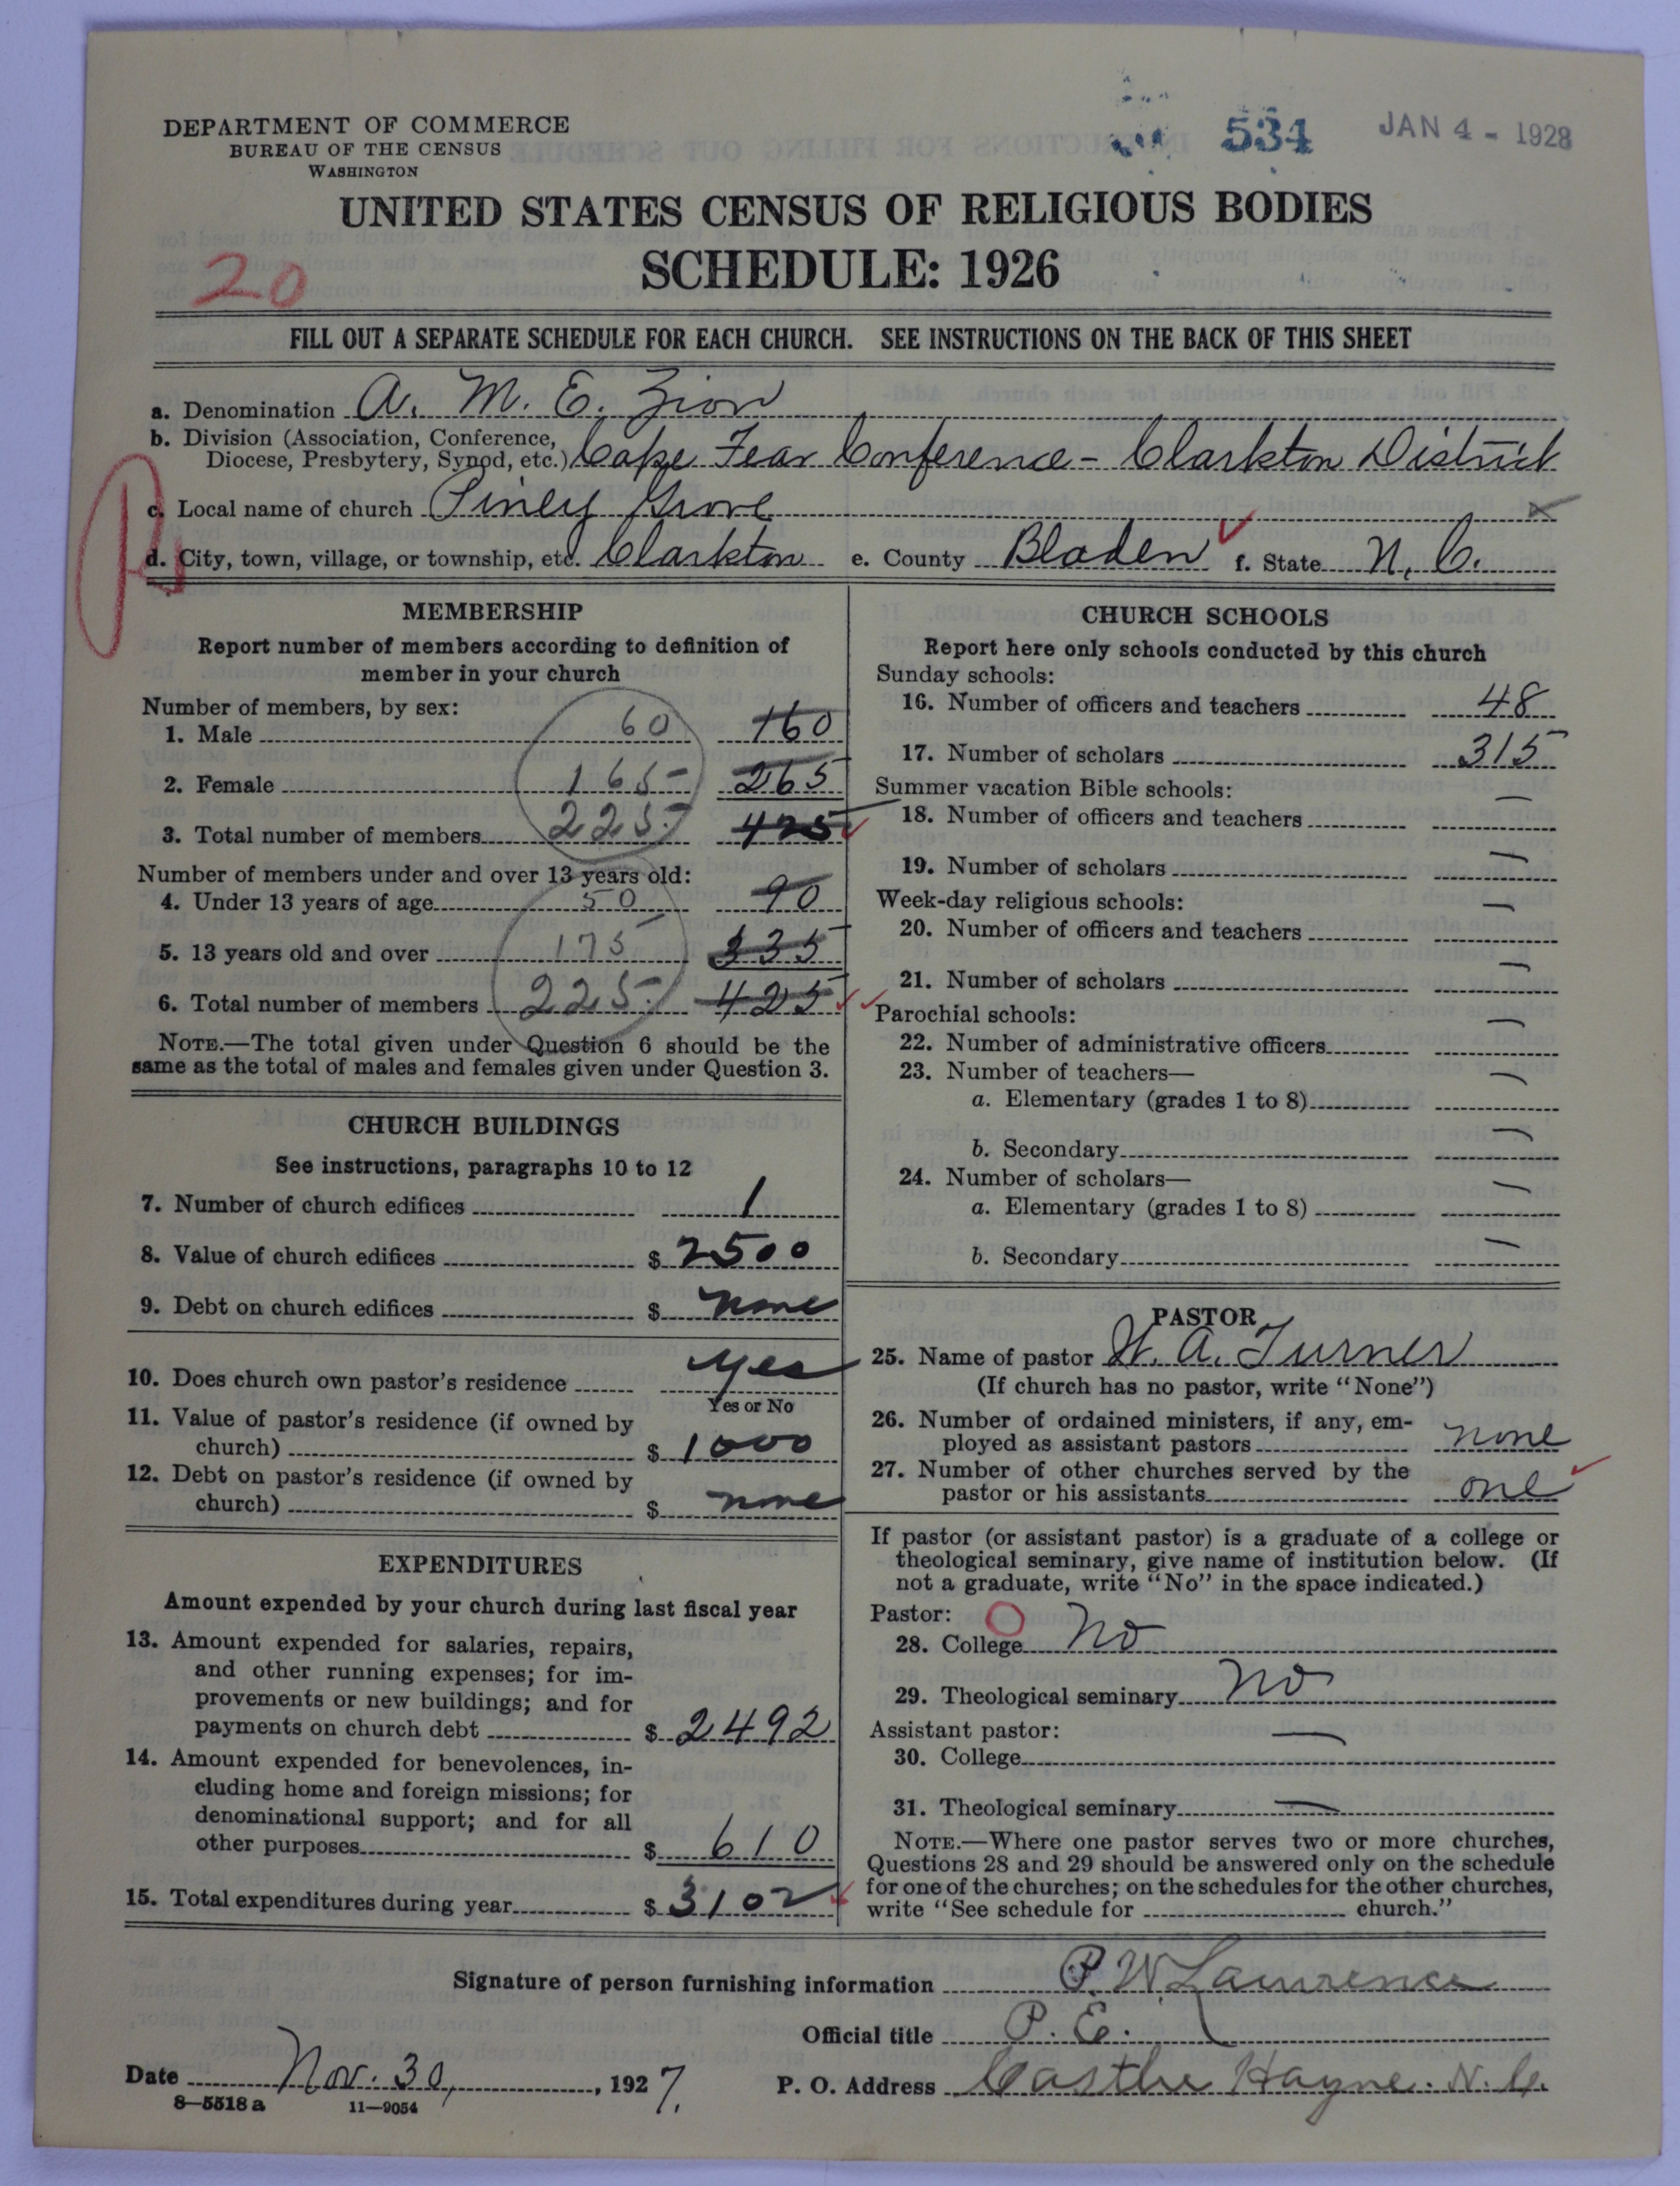 DEPARTMENT OF COMMERCE
BUREAU OF THE CENSUS
WASHINGTON
534 JAN 4 - 1928
UNITED STATES CENSUS OF RELIGIOUS BODIES
SCHEDULE: 1926
20
FILL OUT A SEPARATE SCHEDULE FOR EACH CHURCH. SEE INSTRUCTIONS ON THE BACK OF THIS SHEET
a. Denomination A. M. E. Zion
b. Division (Association, Conference, Diocese, Presbytery, Synod, etc.) Cape Fear Conference - Clarkton District
c. Local name of church Piney Grove
d. City, town, village, or township, etc. Clarkton e. County Bladen f. State N. C.
MEMBERSHIP
Report number of members according to definition of
member in your church
Number of members, by sex:
1. Male 60 160
2. Female 165 265
3. Total number of members 225 425
Number of members under and over 13 years old:
4. Under 13 years of age 50 90
5. 13 years old and over 175 335
6. Total number of members 225 425
NOTE.—The total given under Question 6 should be the
same as the total of males and females given under Question 3.
CHURCH BUILDINGS
See instructions, paragraphs 10 to 12
7. Number of church edifices 1
8. Value of church edifices $ 2500
9. Debt on church edifices $ none
10. Does church own pastor's residence yes
Yes or No
11. Value of pastor's residence (if owned by
church) $ 1000
12. Debt on pastor's residence (if owned by
church) $ none
EXPENDITURES
Amount expended by your church during last fiscal year
13. Amount expended for salaries, repairs,
and other running expenses; for im-
provements or new buildings; and for
payments on church debt $ 2492
14. Amount expended for benevolences, in-
cluding home and foreign missions; for
denominational support; and for all
other purposes $ 610
15. Total expenditures during year $ 3102
CHURCH SCHOOLS
Report here only schools conducted by this church
Sunday schools:
16. Number of officers and teachers 48
17. Number of scholars 315
Summer vacation Bible schools:
18. Number of officers and teachers —
19. Number of scholars —
Week-day religious schools:
20. Number of officers and teachers —
21. Number of scholars —
Parochial schools:
22. Number of administrative officers —
23. Number of teachers—
a. Elementary (grades 1 to 8) —
b. Secondary —
24. Number of scholars—
a. Elementary (grades 1 to 8) —
b. Secondary —
PASTOR
25. Name of pastor W. A. Turner
(If church has no pastor, write "None")
26. Number of ordained ministers, if any, em-
ployed as assistant pastors none
27. Number of other churches served by the
pastor or his assistants one
If pastor (or assistant pastor) is a graduate of a college or
theological seminary, give name of institution below. (If
not a graduate, write "No" in the space indicated.)
Pastor:
28. College No
29. Theological seminary No
Assistant pastor:
30. College —
31. Theological seminary —
NOTE.—Where one pastor serves two or more churches,
Questions 28 and 29 should be answered only on the schedule
for one of the churches; on the schedules for the other churches,
write "See schedule for church."
Signature of person furnishing information P. W. Lawrence
Official title P. E.
Date Nov. 30, 1927. P. O. Address Castle Hayne. N. C.
8—5518 a 11—9054